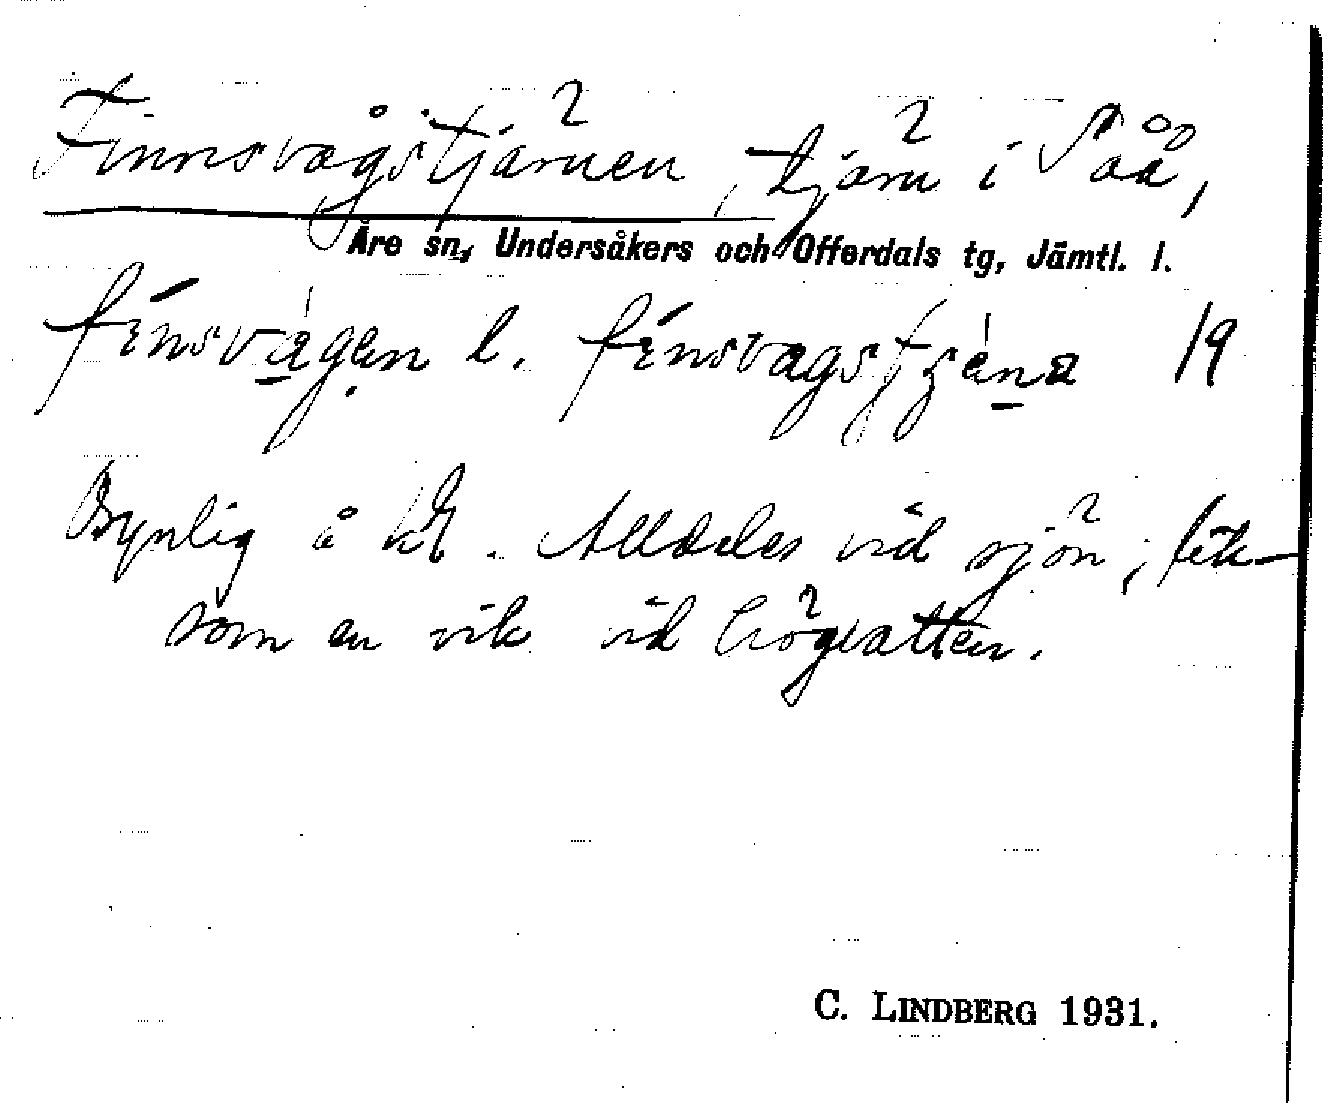 Finnsvågstjärnen, tjärn i Såå,
Åre sn, Undersåkers och Offerdals tg, Jämtl. l.
finsvagen l. finsvagstjena 19
Synlig å kt. Alldeles vid sjön, lik-
som en vik vid högvatten.
C. LINDBERG 1931.